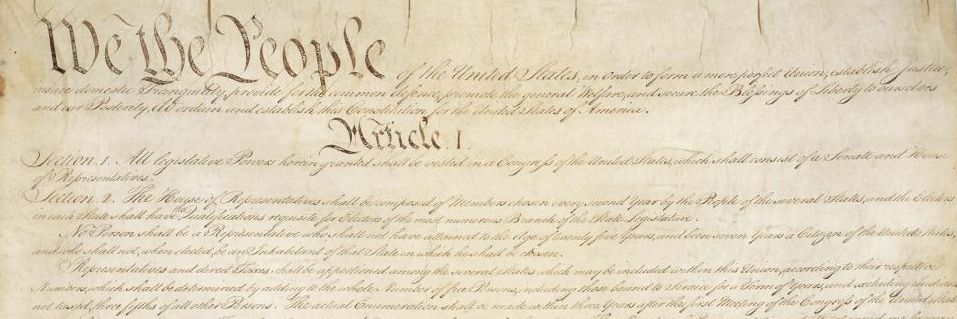 We the People of the United States, in Order to form a more perfect Union, establish Justice,
insure domestic Tranquility, provide for the common defence, promote the general Welfare, and secure the Blessings of Liberty to ourselves
and our Posterity, do ordain and establish this Constitution for the United States of America.
Article. I.
Section. 1. All legislative Powers herein granted shall be vested in a Congress of the United States, which shall consist of a Senate and House
of Representatives.
Section. 2. The House of Representatives shall be composed of Members chosen every second Year by the People of the several States, and the Electors
in each State shall have Qualifications requisite for Electors of the most numerous Branch of the State Legislature.
No Person shall be a Representative who shall not have attained to the Age of twenty five Years, and been seven Years a Citizen of the United States,
and who shall not, when elected, be an Inhabitant of that State in which he shall be chosen.
Representatives and direct Taxes shall be apportioned among the several States which may be included within this Union, according to their respective
Numbers, which shall be determined by adding to the whole Number of free Persons, including those bound to Service for a Term of Years, and excluding Indians
not taxed, three fifths of all other Persons. The actual Enumeration shall be made within three Years after the first Meeting of the Congress of the United States